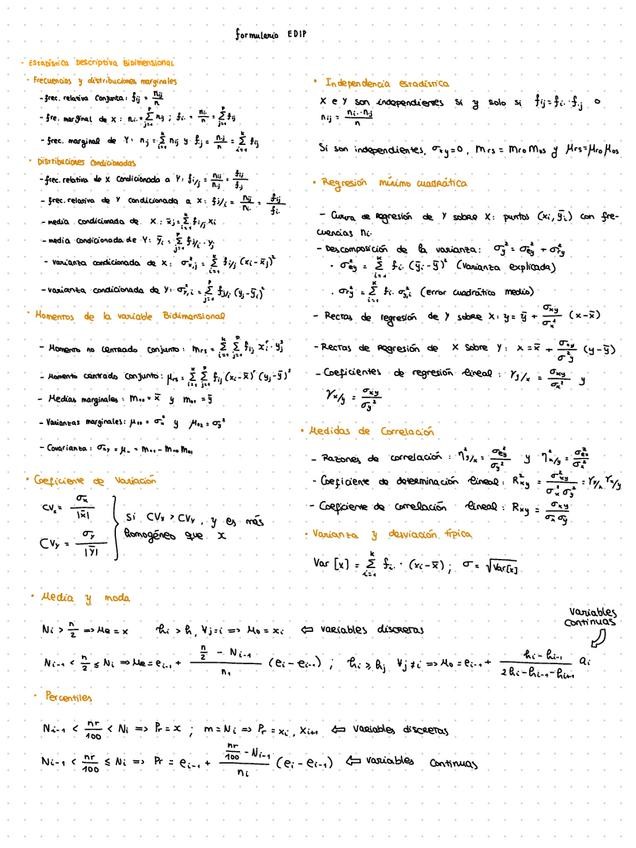 formulario EDIP
· Estadística Descriptiva Bidimensional
· Frecuencias y distribuciones marginales
- frec. relativa conjunta: f_ij = n_ij / n
- fre. marginal de X: n_i. = Σ_{j=1}^p n_ij ; f_i. = n_i. / n = Σ_{j=1}^p f_ij
- frec. marginal de Y: n_.j = Σ_{i=1}^k n_ij y f_.j = n_.j / n = Σ_{i=1}^k f_ij
· Distribuciones condicionadas
- frec. relativa de X condicionado a Y: f_i/j = n_ij / n_.j = f_ij / f_.j
- frec. relativa de Y condicionada a X: f_j/i = n_ij / n_i. = f_ij / f_i.
- media condicionada de X: x̄_j = Σ_{i=1}^k f_i/j x_i
- media condicionada de Y: ȳ_i = Σ_{j=1}^p f_j/i · y_j
- varianza condicionada de X: σ²_x,j = Σ_{i=1}^k f_i/j (x_i - x̄_j)²
- varianza condicionada de Y: σ²_y,i = Σ_{j=1}^p f_j/i (y_j - ȳ_i)²
· Momentos de la variable Bidimensional
- Momento no centrado conjunto: m_rs = Σ_{i=1}^k Σ_{j=1}^p f_ij x_i^r · y_j^s
- Momento centrado conjunto: μ_rs = Σ_{i=1}^k Σ_{j=1}^p f_ij (x_i - x̄)^r (y_j - ȳ)^s
- Medias marginales: m_10 = x̄ y m_01 = ȳ
- Varianzas marginales: μ_20 = σ_x² y μ_02 = σ_y²
- Covarianza: σ_xy = μ_11 = m_11 - m_10 m_01
· Coeficiente de Variación
CV_x = σ_x / |x̄|
CV_y = σ_y / |ȳ|
Si CV_x > CV_y, y es más
homogéneo que x
· Independencia estadística
X e Y son independientes si y solo si f_ij = f_i. · f_.j o
n_ij = n_i. · n_.j / n
Si son independientes, σ_xy = 0, m_rs = m_r0 m_0s y μ_rs = μ_r0 μ_0s
· Regresión mínimo cuadrática
- Curva de regresión de Y sobre X: puntos (x_i, ȳ_i) con fre-
cuencias n_i.
- Descomposición de la varianza: σ_y² = σ²_ey + σ²_ry
· σ²_ey = Σ_{i=1}^k f_i. (ȳ_i - ȳ)² (Varianza explicada)
· σ²_ry = Σ_{i=1}^k f_i. σ²_y,i (error cuadrático medio)
- Rectas de regresión de Y sobre X: y = ȳ + σ_xy / σ_x² (x - x̄)
- Rectas de Regresión de X sobre Y: x = x̄ + σ_xy / σ_y² (y - ȳ)
- Coeficientes de regresión lineal: γ_y/x = σ_xy / σ_x² y
γ_x/y = σ_xy / σ_y²
· Medidas de Correlación
- Razones de correlación: η²_y/x = σ²_ey / σ_y² y η²_x/y = σ²_ex / σ_x²
- Coeficiente de determinación lineal: R²_xy = σ²_xy / σ_x² σ_y² = γ_y/x γ_x/y
- Coeficiente de correlación lineal: R_xy = σ_xy / σ_x σ_y
· Varianza y desviación típica
Var [x] = Σ_{i=1}^k f_i. · (x_i - x̄) ; σ = √Var[x]
· Media y moda
N_i > n/2 => Me = x h_i > h, ∀j=i => M_o = x_i ⇐ variables discretas
variables
continuas
N_i-1 < n/2 ≤ N_i => Me = e_i-1 + (n/2 - N_i-1) / n_i (e_i - e_i-1) ; h_i ≥ h_j ∀j≠i => M_o = e_i-1 + (h_i - h_i-1) / (2h_i - h_i-1 - h_i+1) a_i
· Percentiles
N_i-1 < nr/100 < N_i => P_r = x ; m = N_i => P_r = x_i, x_i+1 ⇐ variables discretas
N_i-1 < nr/100 ≤ N_i => P_r = e_i-1 + (nr/100 - N_i-1) / n_i (e_i - e_i-1) ⇐ variables continuas